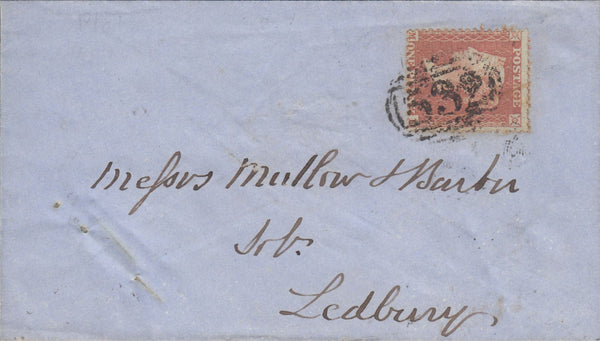 POSTAGE
ONE PENNY
Messrs Mullow & Barber
Solrs
Ledbury